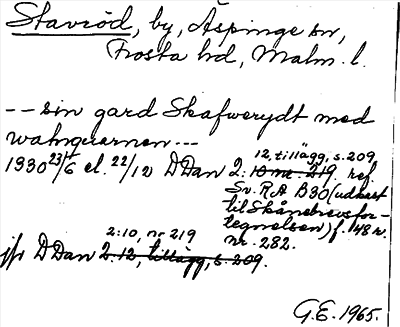 Stavröd, by, Äspinge sn,
Frosta hd, Malm. l.
-- sin gard Skafwerydt med
watnquernen ---
12, tillägg, s. 209
1330 23/6 el. 22/12 D Dan 2: 10 nr. 219. ref.
Sv. R.A B30 (udkast
til Skånebrevsfor-
tegnelsen) f. 148 r.
nr. 282.
2:10, nr 219
jfr D Dan 2:12, tillägg, s. 209.
G.E. 1965.